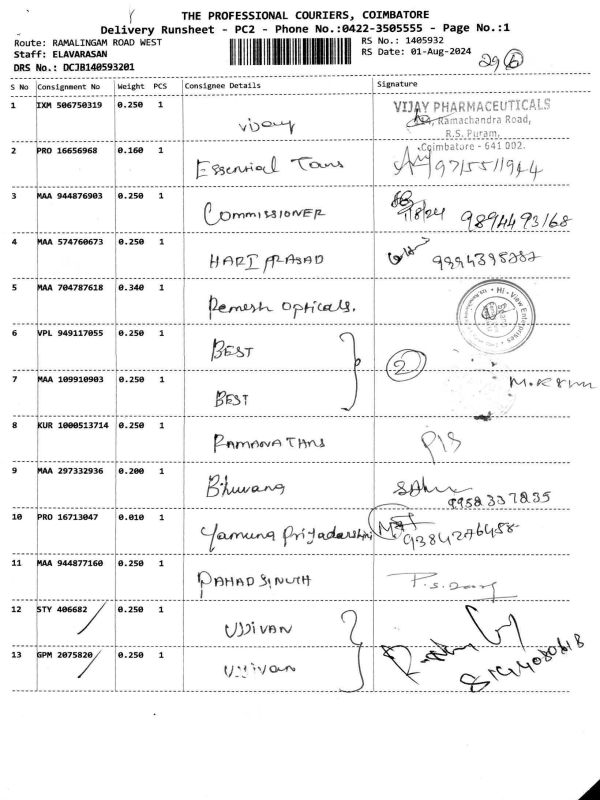 THE PROFESSIONAL COURIERS, COIMBATORE
Delivery Runsheet - PC2 - Phone No.:0422-3505555 - Page No.:1
Route: RAMALINGAM ROAD WEST
RS No.: 1405932
Staff: ELAVARASAN
RS Date: 01-Aug-2024
DRS No.: DCJB140593201
29 6
S No Consignment No Weight PCS Consignee Details Signature
1 IXM 506750319 0.250 1 Vijay
VIJAY PHARMACEUTICALS
Ramachandra Road,
R.S. Puram,
Coimbatore - 641 002.
2 PRO 16656968 0.160 1 Essential Tans 9715511944
3 MAA 944876903 0.250 1 COMMISSIONER 1/8/24 9894493168
4 MAA 574760673 0.250 1 HARI PRASAD
5 MAA 704787618 0.340 1 Remesh Opticals. Hi - View Enterprises
6 VPL 949117055 0.250 1 BEST 2
7 MAA 109910903 0.250 1 BEST
8 KUR 1000513714 0.250 1 RAMANA TRANS
9 MAA 297332936 0.200 1 Bhuvana
9958337835
10 PRO 16713047 0.010 1 Yamuna Priyadarshini
9384276458
11 MAA 944877160 0.250 1
12 STY 406682 0.250 1 UJJIVAN
13 GPM 2075820 0.250 1 UJJIVAN